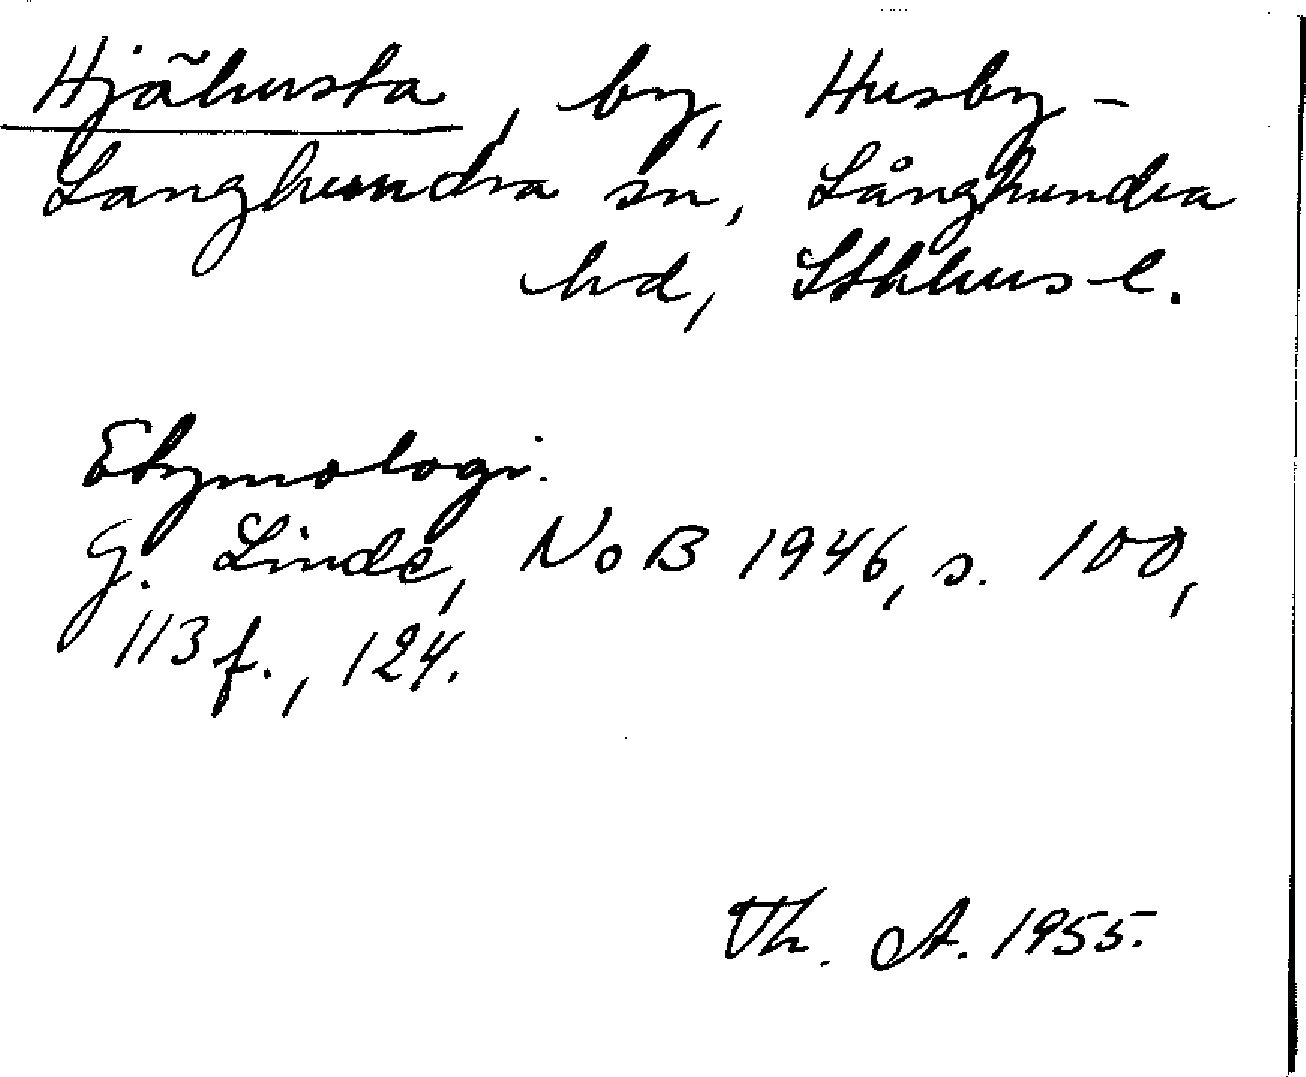 Hjälmsta, by, Husby-
Långhundra sn, Långhundra
hd, Sthlms l.
Etymologi.
G. Linde, NoB 1946, s. 100,
113 f., 124.
Th. A. 1955.